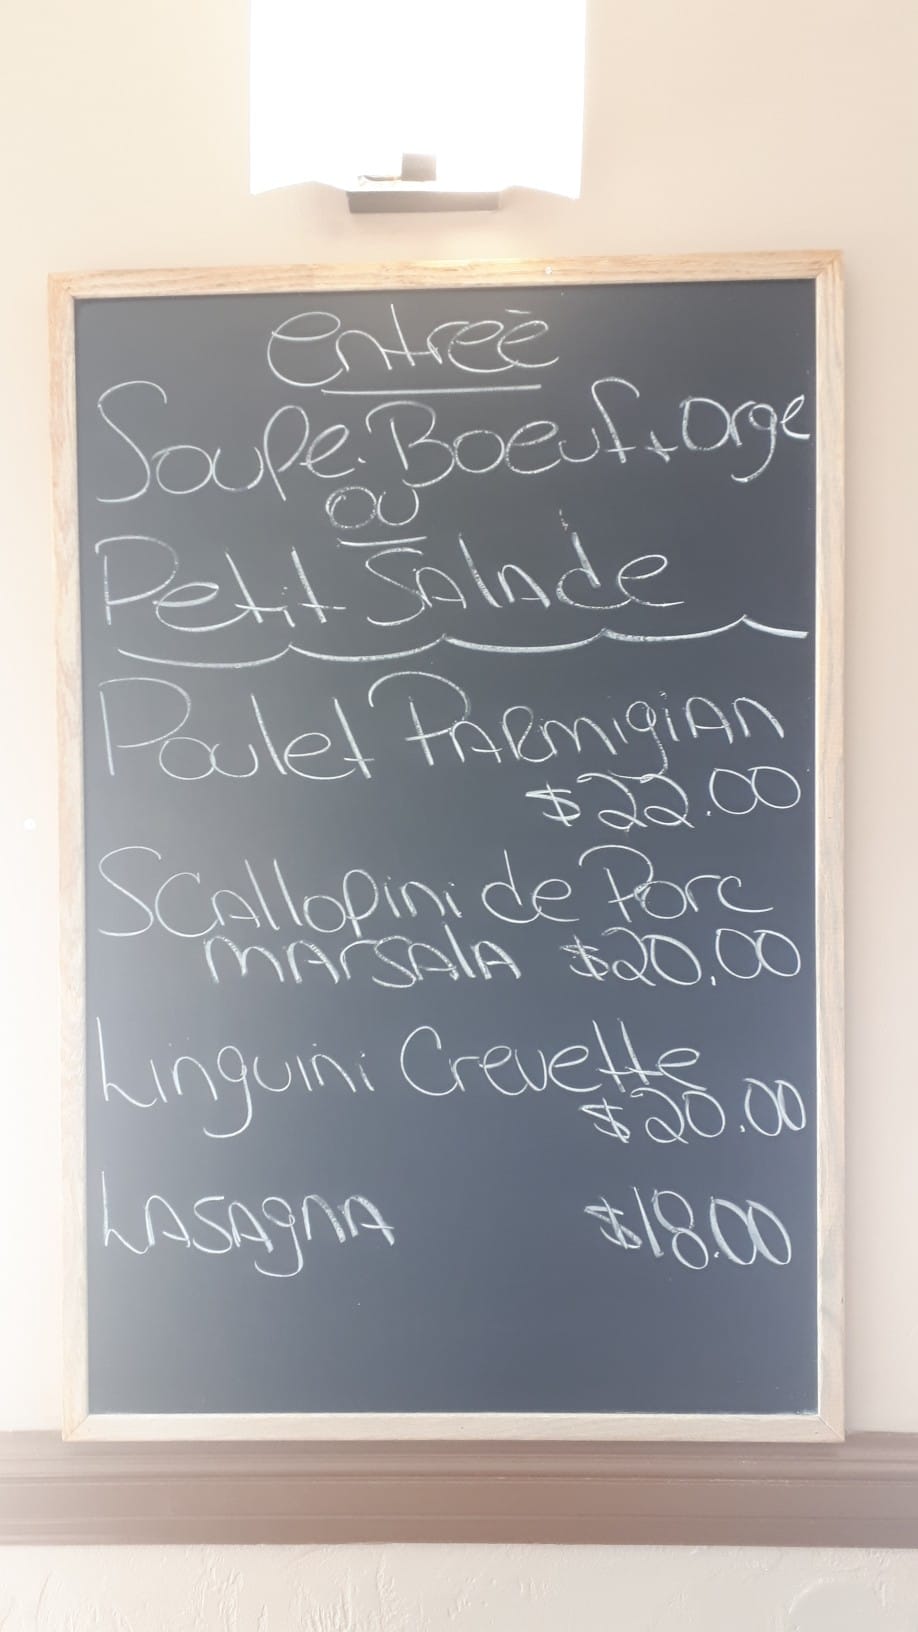 entreē
Soupe. Boeuf + Orge
ou
Petit Salade
Poulet Parmigian
$22.00
Scallopini de Porc
marsala $20.00
Linguini Crevette
$20.00
Lasagna $18.00